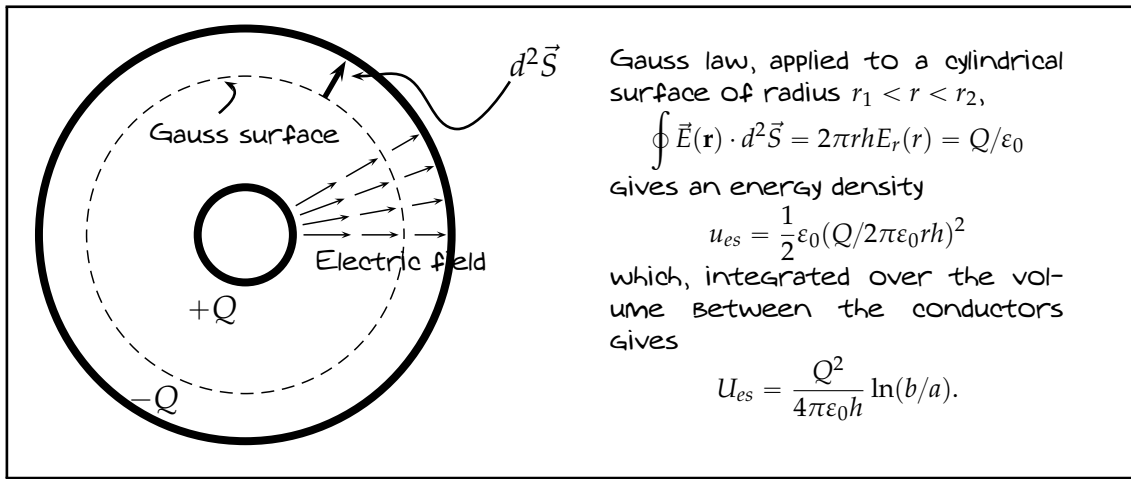 d²S⃗
Gauss surface
Electric field
+Q
−Q
Gauss law, applied to a cylindrical
surface of radius r₁ < r < r₂,
∮ E⃗(𝐫) · d²S⃗ = 2πrhEᵣ(r) = Q/ε₀
gives an energy density
u_{es} = \frac{1}{2}ε₀(Q/2πε₀rh)²
which, integrated over the vol-
ume between the conductors
gives
U_{es} = \frac{Q²}{4πε₀h} ln(b/a).